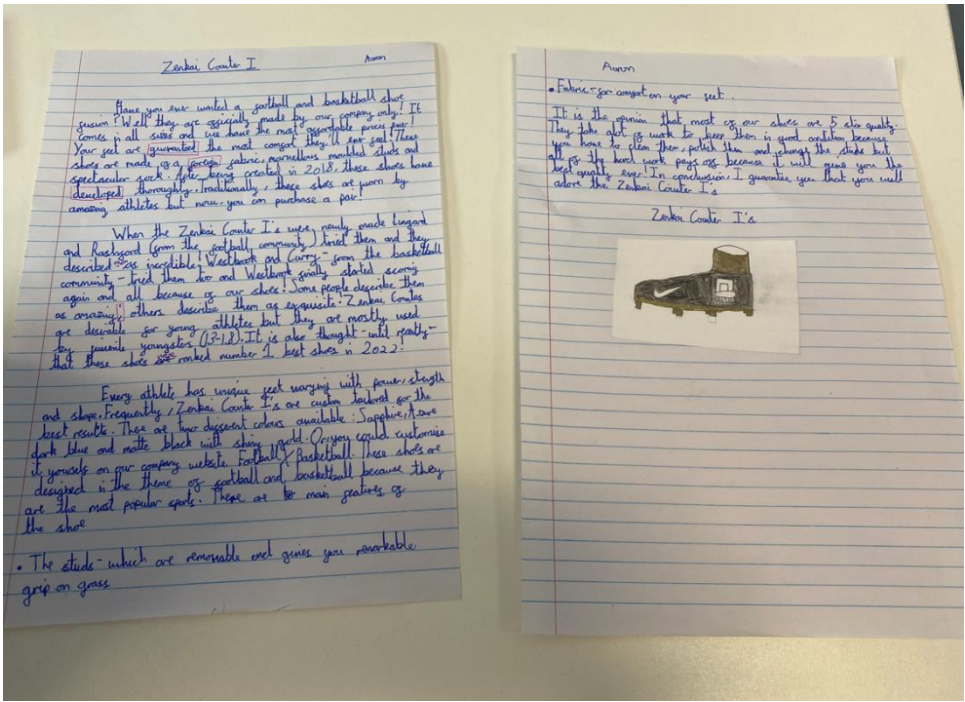 Zenkai Counter I
Aaron
Have you ever wanted a football and basketball shoe
fusion? Well they are officially made by our company only! It
comes in all sizes and we have the most affordable prices ever!
Your feet are guaranteed the most comfort they'll ever feel! These
shoes are made of a foreign fabric, marvellous moulded studs and
spectacular sock. After being created in 2018, these shoes have
developed thoroughly. Traditionally, these shoes are worn by
amazing athletes but now you can purchase a pair!
When the Zenkai Counter I's were newly made Lingard
and Rashford (from the football community) tried them and they
described as incredible! Westbrook and Curry - from the basketball
community - tried them too and Westbrook finally started scoring
again and all because of our shoes! Some people describe them
as amazing; others describe them as exquisite! Zenkai Counters
are desirable for young athletes but they are mostly used
by juvenile youngsters (13-18). It is also thought - until recently -
that these shoes ranked number 1 best shoes in 2022!
Every athlete has unique feet varying with power, strength
and shape. Frequently, Zenkai Counter I's are custom tailored for the
best results. There are two different colours available: Sapphire,
dark blue and matte black with shiny gold. Or you could customise
it yourself on our company website Football X Basketball. These shoes are
designed in the theme of football and basketball because they
are the most popular sports. There are main features of
the shoe
• The studs - which are removable and gives you remarkable
grip on grass
Aaron
• Fabric - for comfort on your feet.
It is the opinion that most of our shoes are 5 star quality.
They take alot of work to keep them in good condition because
you have to clean them, polish them and change the studs but
all of the hard work pays off because it will give you the
best quality ever! In conclusion, I guarantee you that you will
adore the Zenkai Counter I's
Zenkai Counter I's